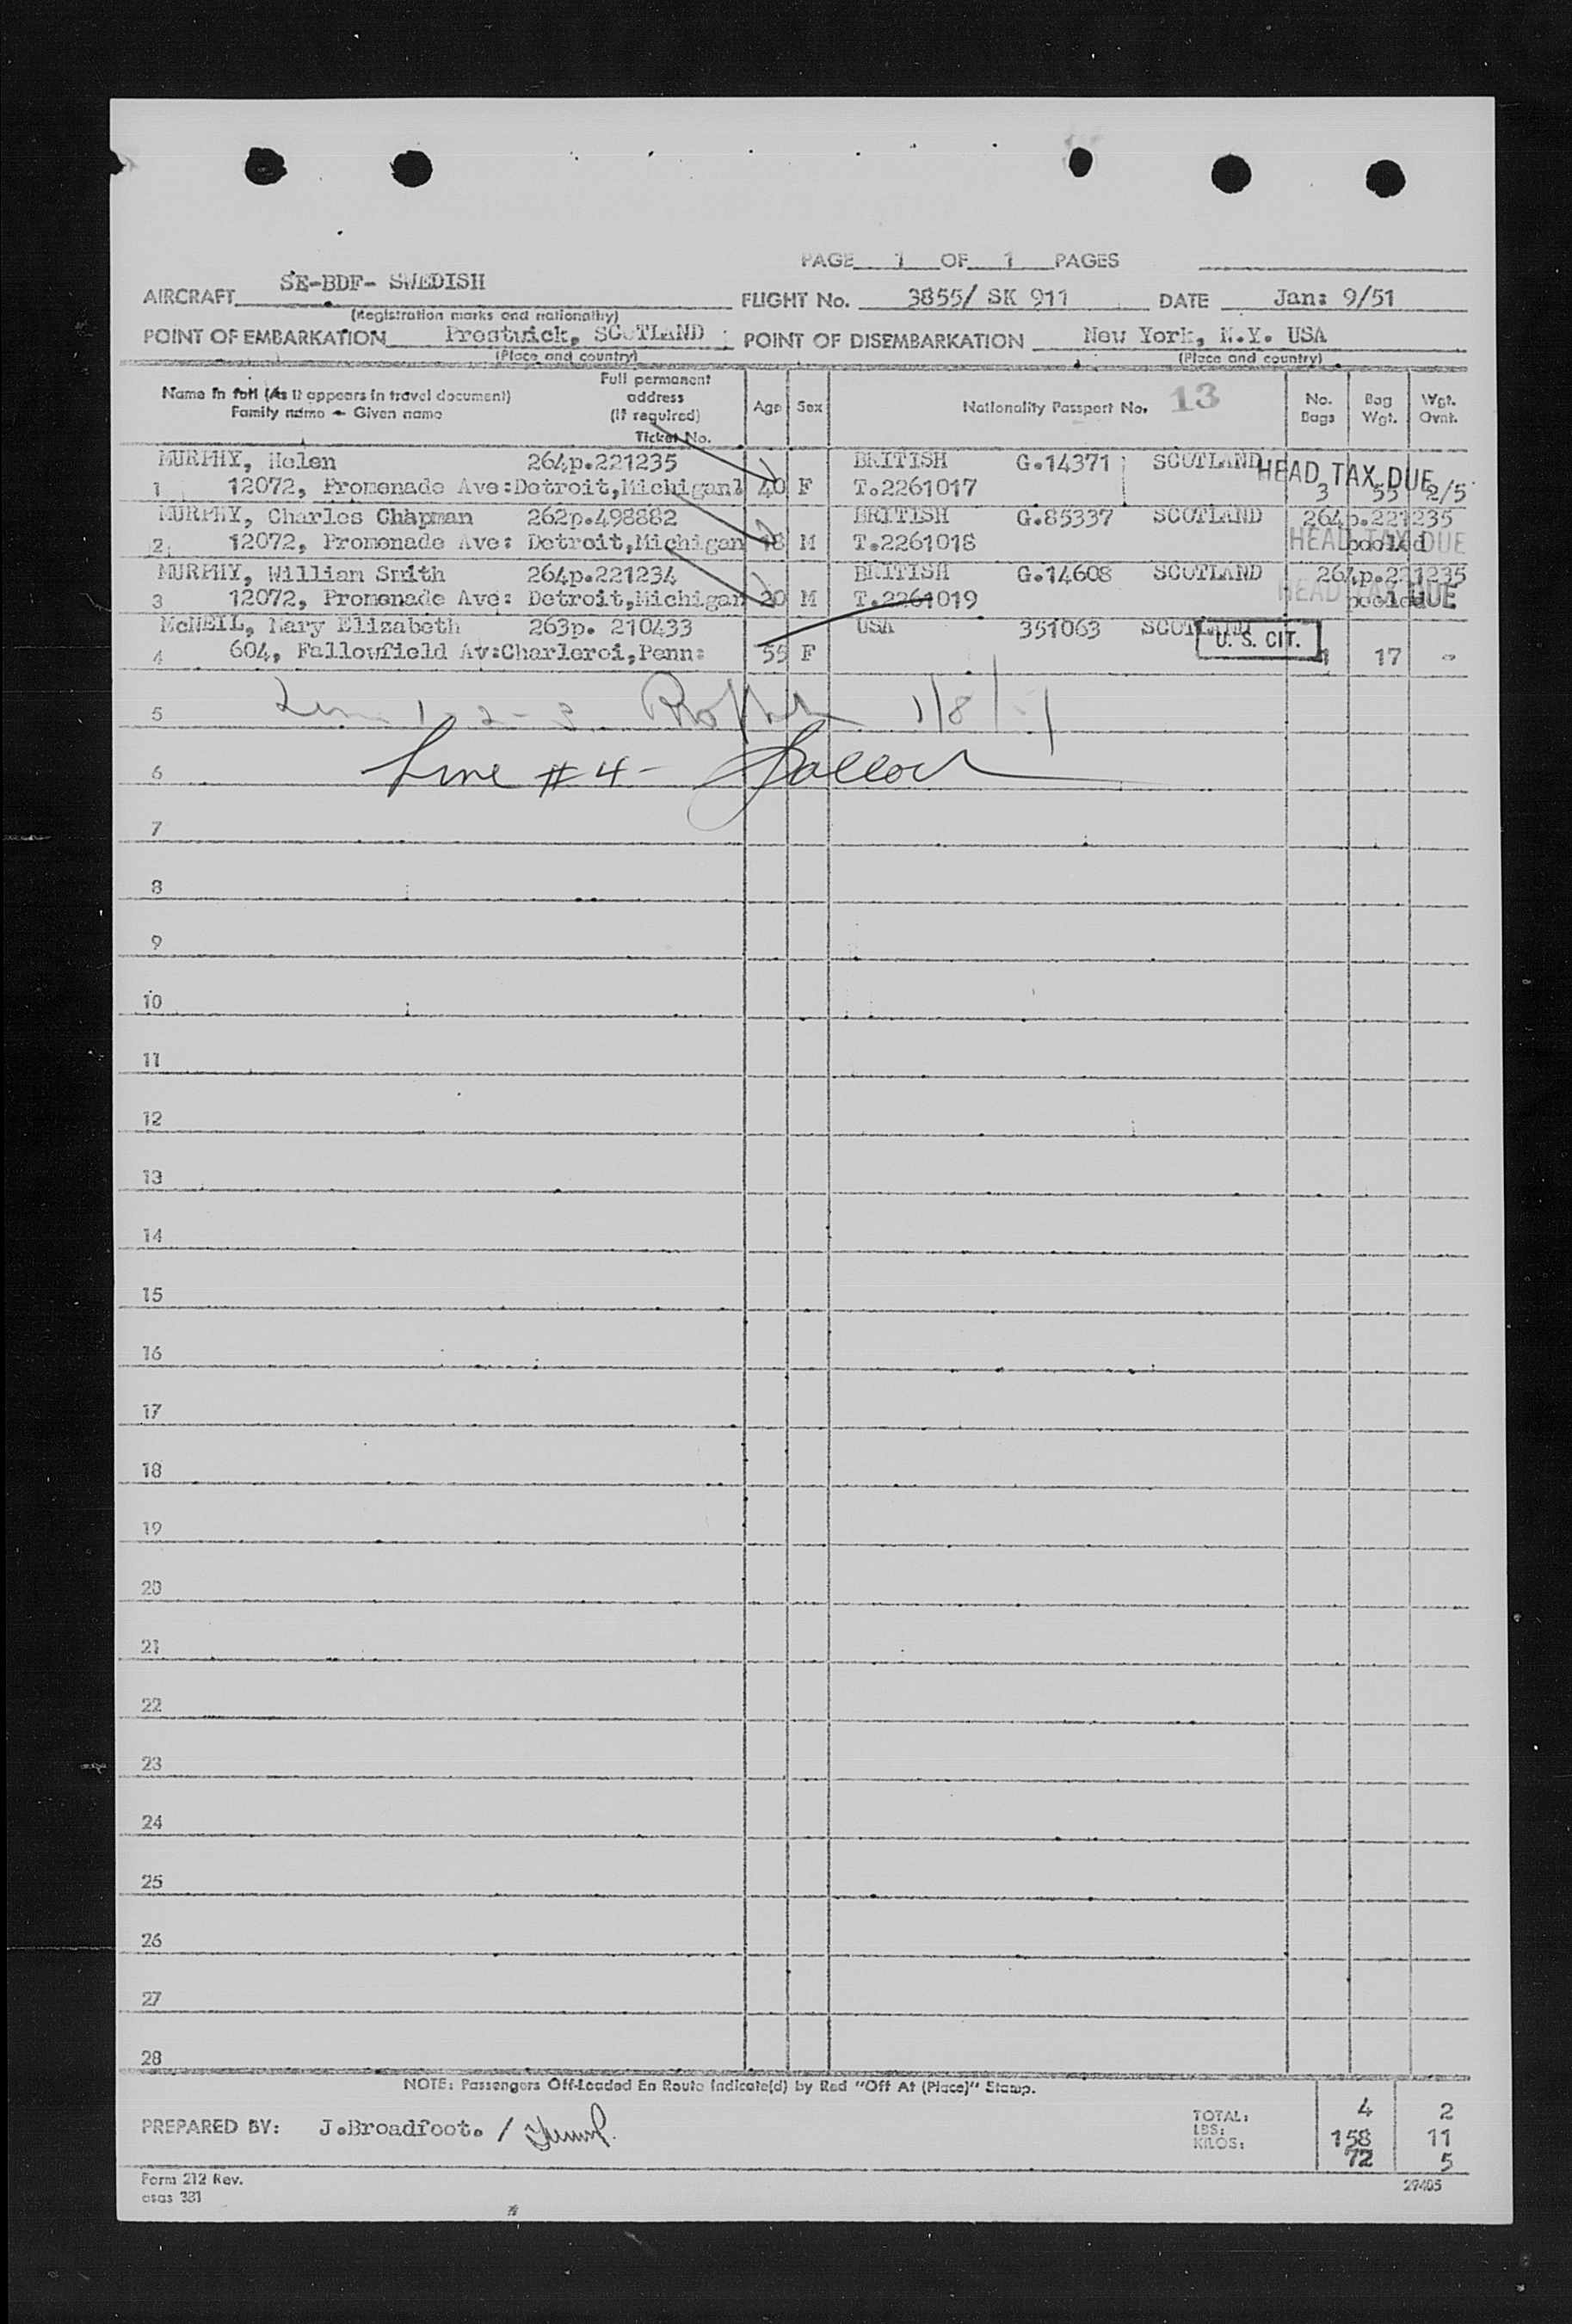 PAGE 1 OF 1 PAGES
AIRCRAFT SE-BDF- SWEDISH FLIGHT No. 3855/ SK 911 DATE Jan: 9/51
(Registration marks and nationality)
POINT OF EMBARKATION Prestwick, SCOTLAND POINT OF DISEMBARKATION New York, N.Y. USA
(Place and country) (Place and country)
Name in full (As it appears in travel document) Family name - Given name
Full permanent address (If required) Ticket No.
Age Sex Nationality Passport No. 13 No. Bags Bag Wgt. Wgt. Ovnt.
MURPHY, Helen 264p.221235 BRITISH G.14371 SCOTLAND HEAD TAX DUE
1 12072, Promenade Ave:Detroit,Michigan 40 F T.2261017 3 55 2/5
MURPHY, Charles Chapman 262p.498882 BRITISH G.85337 SCOTLAND 264p.221235
2 12072, Promenade Ave: Detroit,Michigan 18 M T.2261018 HEAD TAX DUE pooled
MURPHY, William Smith 264p.221234 BRITISH G.14608 SCOTLAND 264p.221235
3 12072, Promenade Ave: Detroit,Michigan 20 M T.2261019 HEAD TAX DUE pooled
McNEIL, Mary Elizabeth 263p. 210433 USA 351063 SCOTLAND U. S. CIT.
4 604, Fallowfield Av:Charleroi,Penn: 55 F 1 17 -
5 1-2-3 1/8/51
6 Line #4-
7
8
9
10
11
12
13
14
15
16
17
18
19
20
21
22
23
24
25
26
27
28
NOTE: Passengers Off-Loaded En Route Indicate(d) by Red "Off At (Place)" Stamp.
PREPARED BY: J.Broadfoot. /
TOTAL: 4 2
LBS: 158 11
KILOS: 72 5
Form 212 Rev. 29405
osas 331